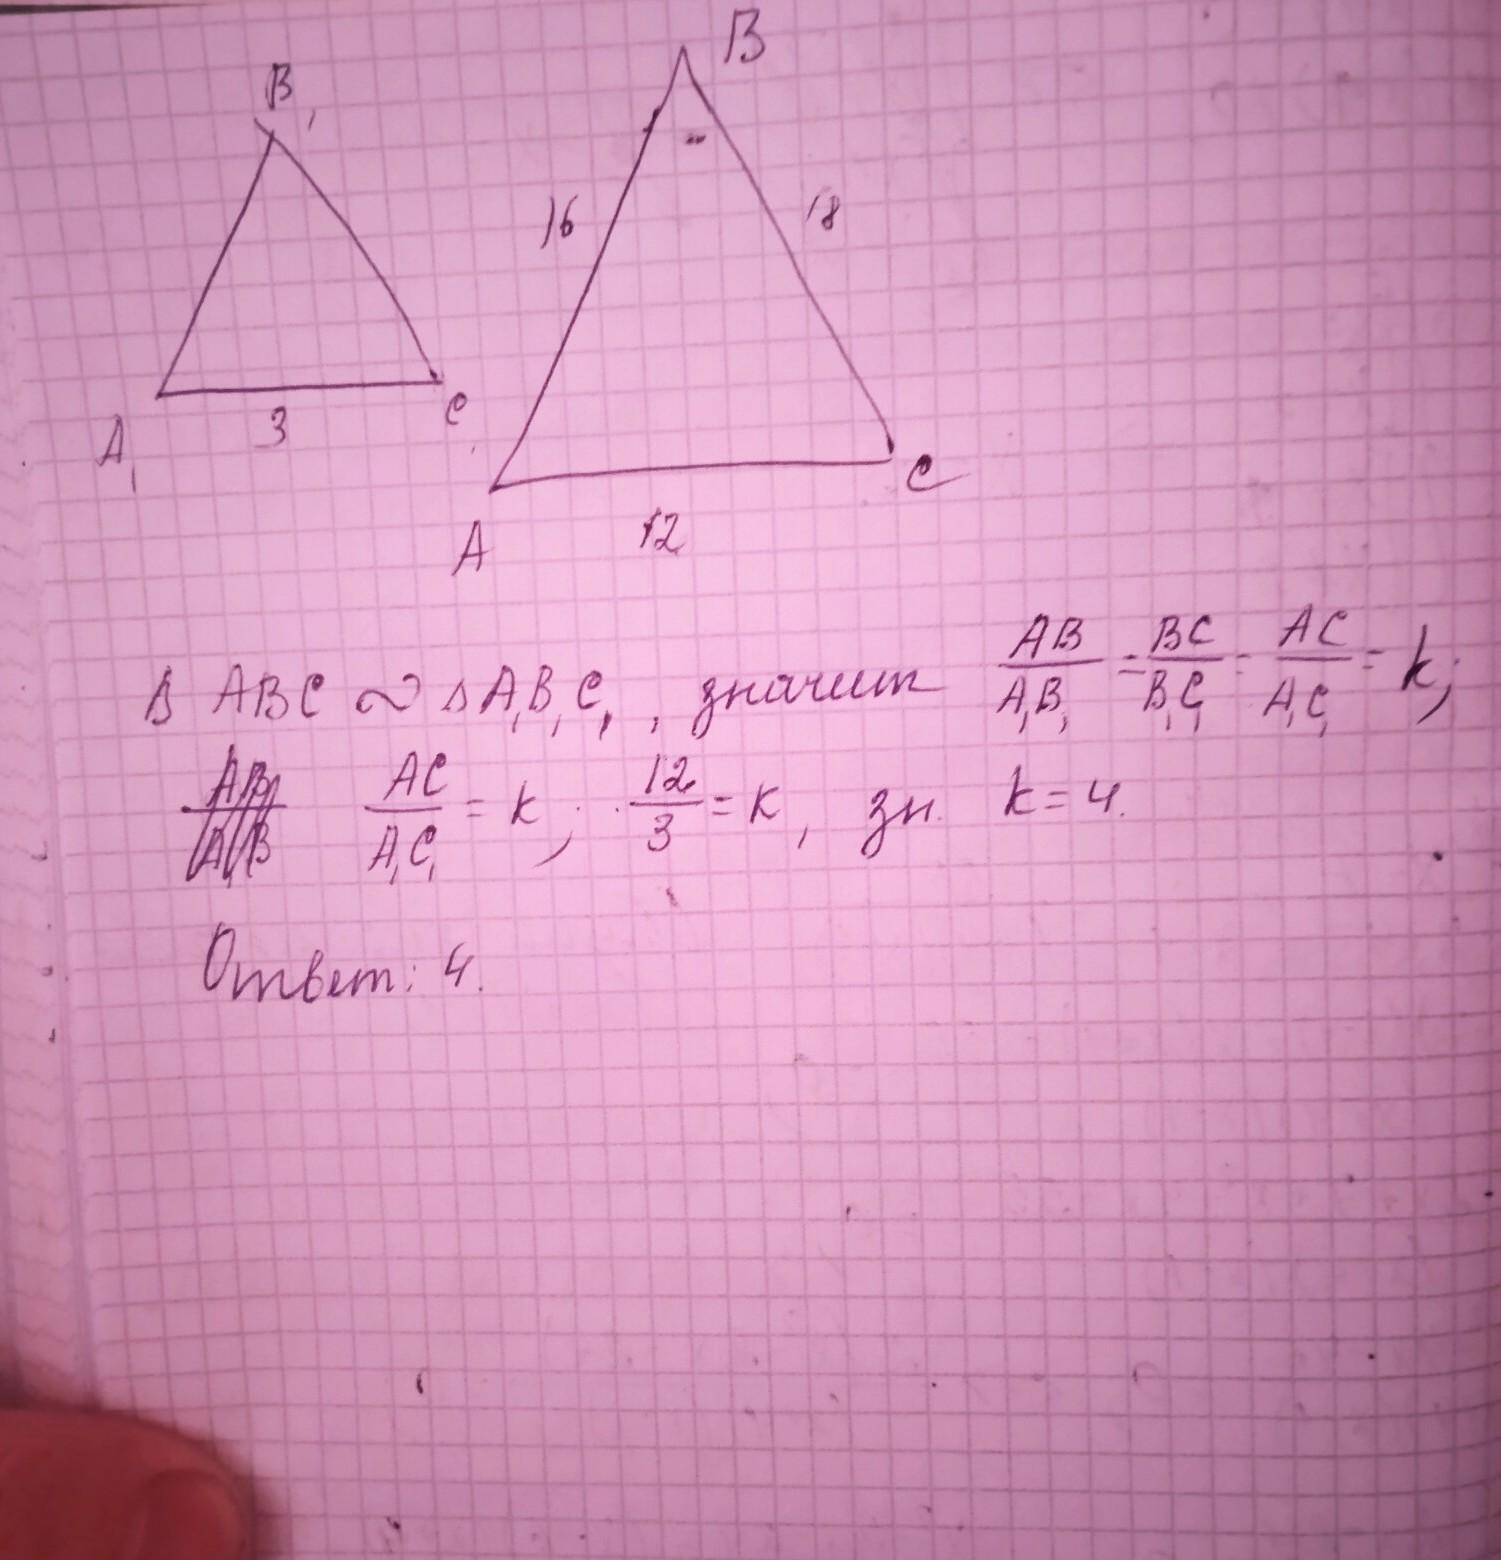 B₁
B
16
18
A₁
3
C₁
A
12
C
Δ ABC ∾ Δ A₁B₁C₁, значит AB/A₁B₁ = BC/B₁C₁ = AC/A₁C₁ = k;
AC/A₁C₁ = k; 12/3 = k, зн. k = 4.
Ответ: 4.